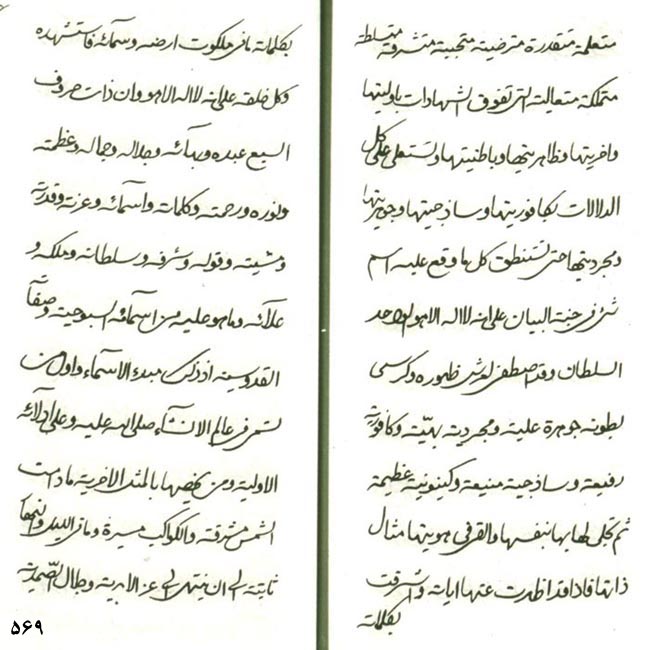 متعلمة متقدرة مترضیة متجبیة متشرقة متسلطة
متملکة متعالیة التی تفوق الشهادات باولیتها
واخریتها وظاهریتها وباطنیتها وتستعلی علی کل
الدلالات بکافوریتها وساذجیتها وجوهریتها
ومجردیتها حتی تستنطق کل ما وقع علیه اسم
شیء فی جنة البیان علی انه لا اله الا هو الواحد
السلطان وقد اصطفی لعرش ظهوره وکرسی
بطونه جوهرة علیة ومجردیة بهیّة وکافوریة
رفیعة وساذجیة منیعة وکینونیة عظیمة
ثم تجلی لها بها بنفسها والقی فی هویتها مثال
ذاتها فاذا قد اظهرت عنها ایاته واشرقت
بکلماته
بکلماته مافی ملکوت ارضه وسمآئه فاستشهده
وکل خلقه علی انه لا اله الا هو وان ذات حروف
السبع عبده وبهآئه وجلاله وجماله وعظمته
ونوره ورحمته وکلماته واسمآئه وعزته وقدرته
ومشیته وقوله وشرفه وسلطانه وملکه و
علآئه وما هو علیه من اسمآئه السبوحیة وصفا
القدوسیة اذ ذلک مبدء الاسماء واول من
تسمی فی عالم الانشآء صلی الله علیه وعلی ادلآئه
الاولیة ومن یخصها بالمثل الاخریة مادامت
الشمس مشرقة والکواکب مسیرة وما فی اللیل والنهار
ثابتة الی ان ینتهی الی عز الابدیة وجلال الصمدیة
۵۶۹